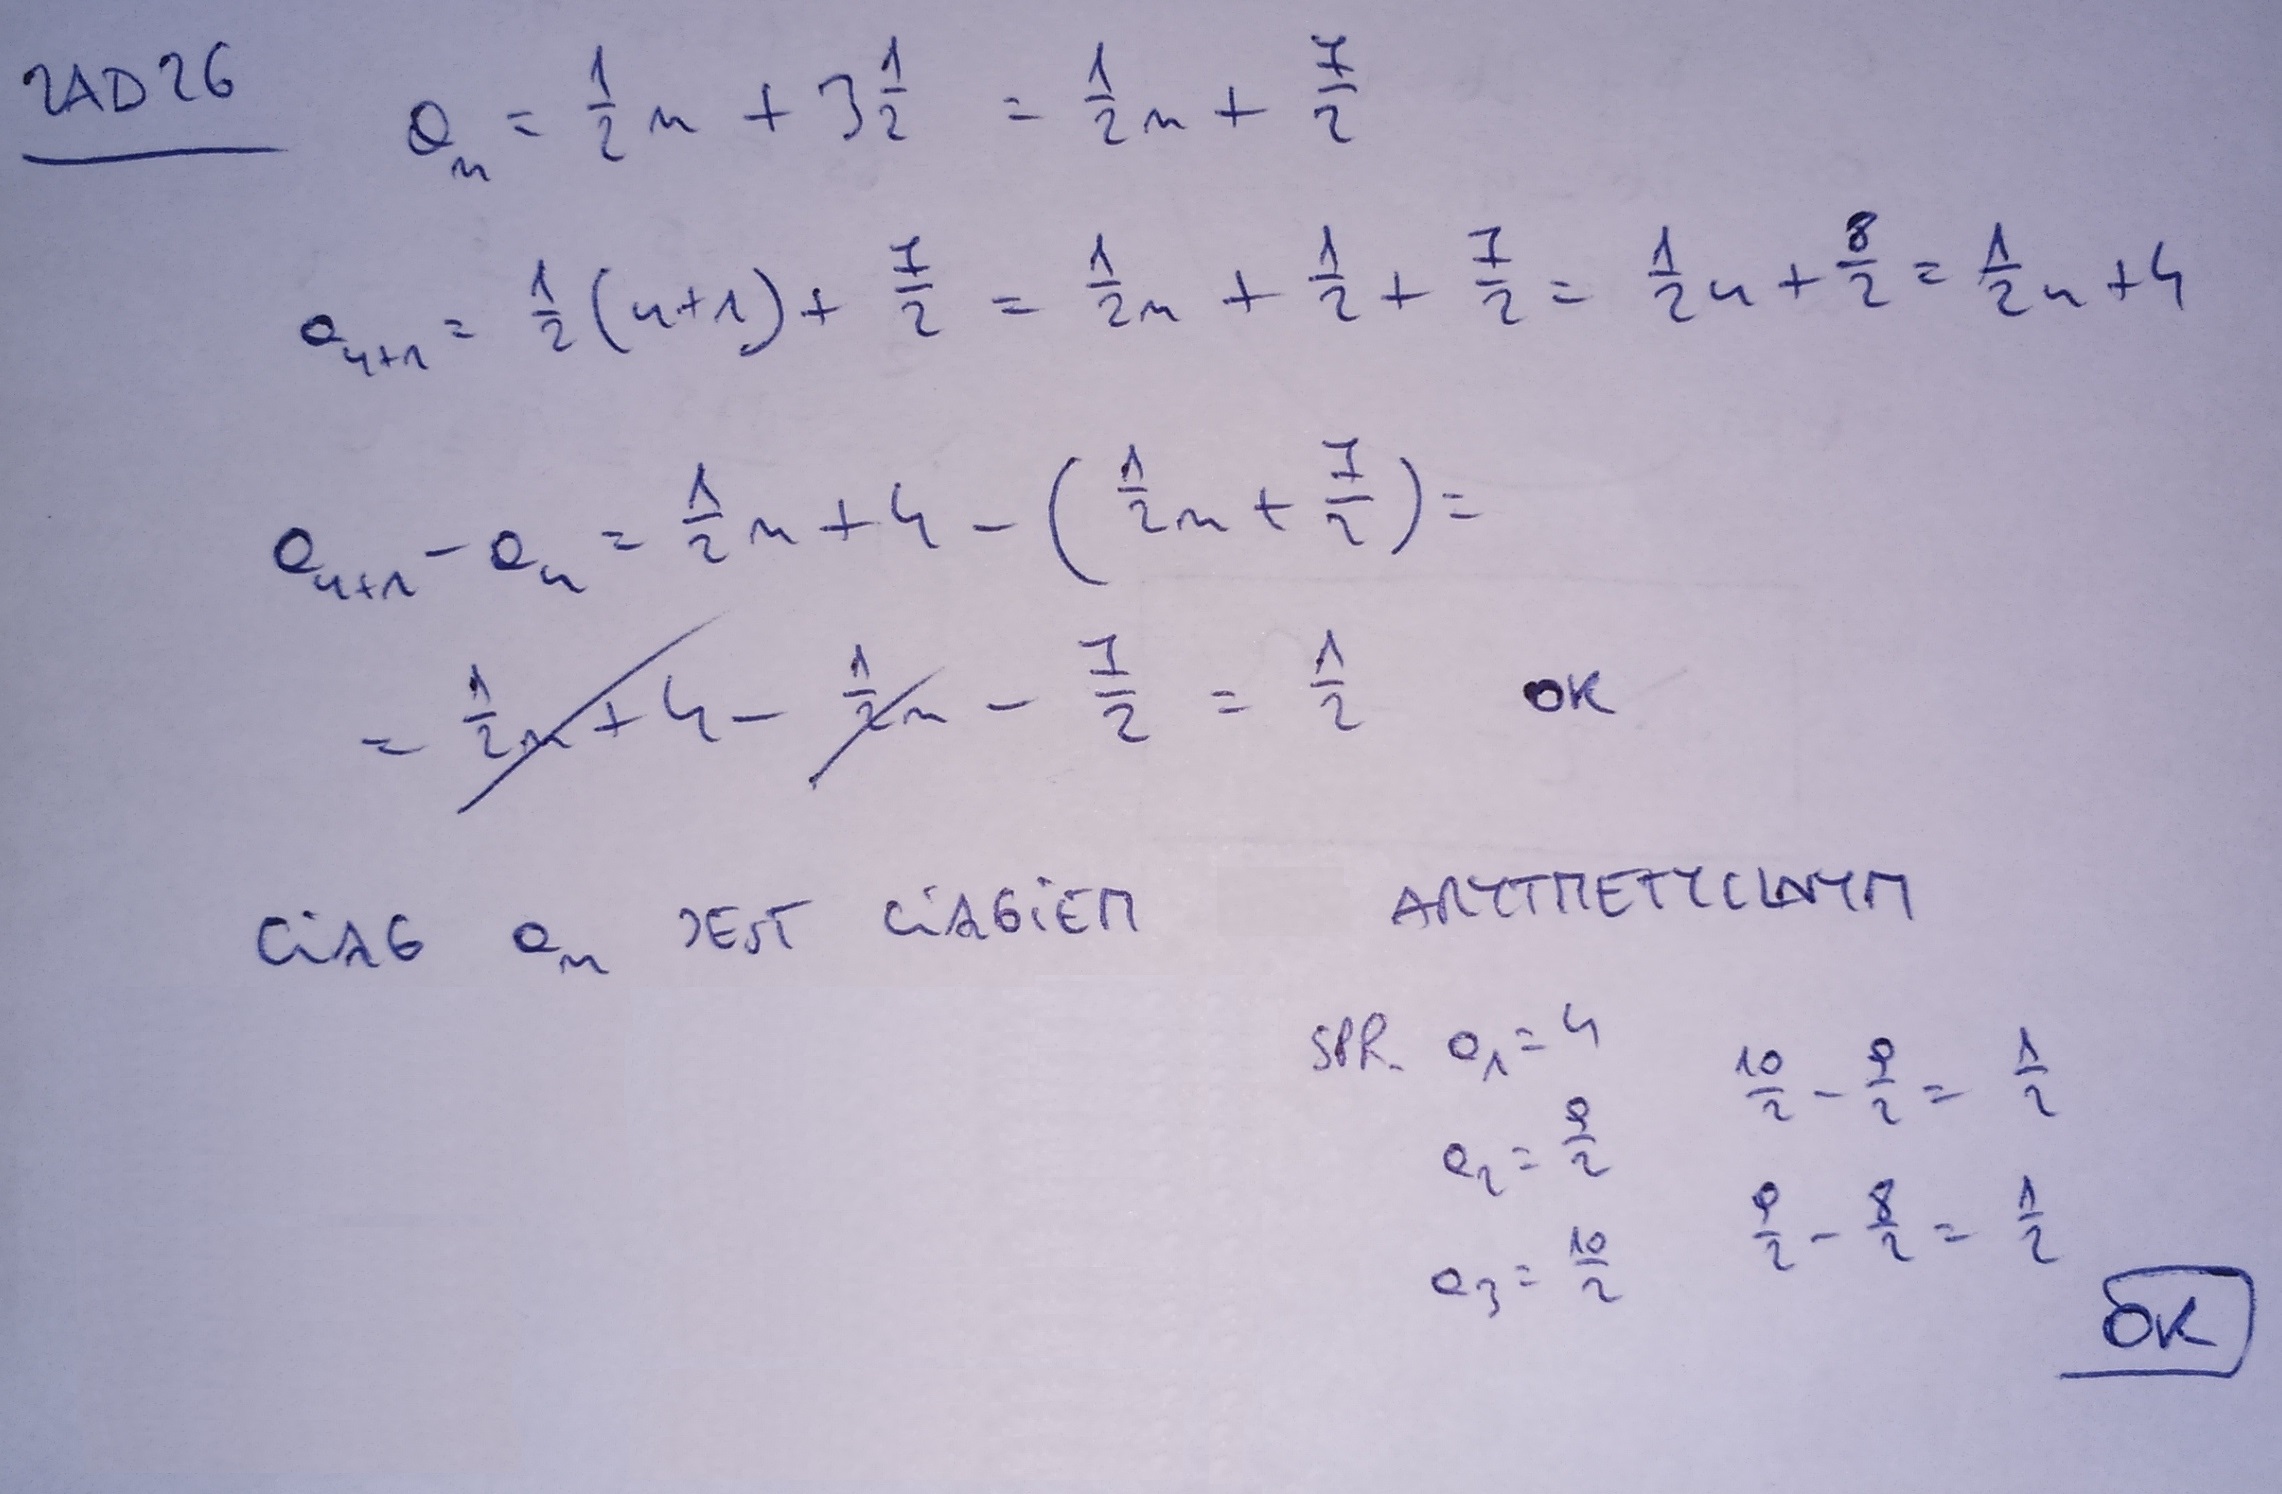 ZAD 26
a_n = 1/2 n + 3 1/2 = 1/2 n + 7/2
a_{n+1} = 1/2 (n+1) + 7/2 = 1/2 n + 1/2 + 7/2 = 1/2 n + 8/2 = 1/2 n + 4
a_{n+1} - a_n = 1/2 n + 4 - (1/2 n + 7/2) =
= 1/2 n + 4 - 1/2 n - 7/2 = 1/2 OK
CIĄG a_n JEST CIĄGIEM ARYTMETYCZNYM
SPR. a_1 = 4
a_2 = 9/2
a_3 = 10/2
10/2 - 9/2 = 1/2
9/2 - 8/2 = 1/2
OK